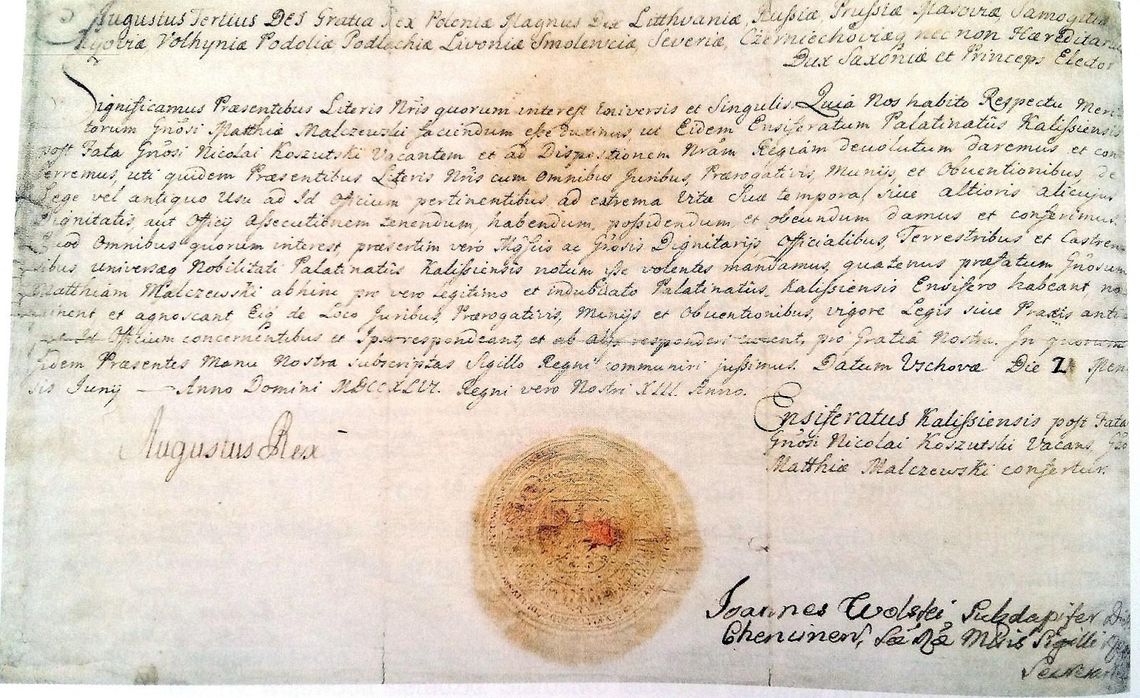 Augustus Tertius DEI Gratia Rex Poloniæ Magnus Dux Litthvaniæ, Russiæ, Prussiæ Masoviæ, Samogitiæ
Kyoviæ Volhyniæ Podoliæ Podlachiæ Livoniæ Smolenciæ, Severiæ, Czerniechoviæq nec non Hæreditarius
Dux Saxoniæ et Princeps Elector
Significamus Præsentibus Literis Nris quorum interest Universis et Singulis. Quia Nos habito Respectu Meri
torum Gnosi Matthiæ Malczewski faciendum esse duximus ut Eidem Ensiferatum Palatinatus Kalissiensis
post Fata Gnosi Nicolai Koszutski Vacantem et ad Dispositionem Nram Regiam devolutum daremus et con
ferremus, uti quidem Præsentibus Literis Nris cum omnibus Juribus, Prærogativis, Munijs, et Obventionibus, de
Lege vel antiquo Usu ad Id Officium pertinentibus, ad extrema Vitæ Suæ tempora, sive altioris alicujus
Dignitatis, aut Officij Assecutionem tenendum, habendum, possidendum, et obeundum damus et conferimus.
Quod Omnibus quorum interest, præsertim vero Mgfcis ac Gnosis Dignitarijs, Officialibus, Terrestribus et Castren
sibus, universæq Nobilitati Palatinatus Kalissiensis notum esse volentes mandamus, quatenus præfatum Gnosum
Matthiam Malczewski abhinc pro vero legitimo et indubitato Palatinatus Kalissiensis Ensifero habeant, no
minent et agnoscant Eiq de Loco Juribus, Prærogativis, Munijs et Obventionibus, vigore Legis sive Praxis anti
Officium concernentibus et Ipsi respondeant, et ab alijs responderi curent, pro Gratia Nostra. In quorum
fidem Præsentes Manu Nostra subscriptas Sigillo Regni communiri jussimus. Datum Vschovæ Die Men
sis Junij Anno Domini MDCCXLVI. Regni vero Nostri XIII. Anno.
Augustus Rex
Ensiferatus Kalissiensis post Fata
Gnosi Nicolai Koszutski Vacans, Gso
Matthiæ Malczewski confertur.
Joannes Wolski Subdapifer
Chencinen, Sæ Mæ Mris Sigilli
Secretarius